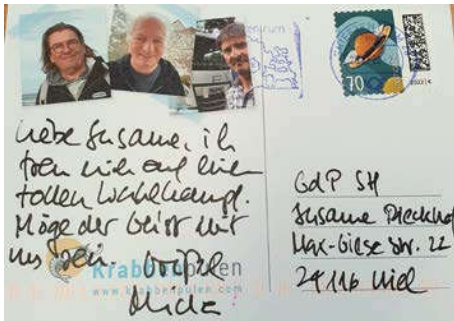 Liebe Susanne, ich
freu mich auf einen
tollen Wahlkampf.
Möge der Geist mit
uns sein. Grüße
Krabbenpulen
www.krabbenpulen.com
70
GdP SH
Susanne Rieckhof
Max-Giese Str. 22
24116 Kiel